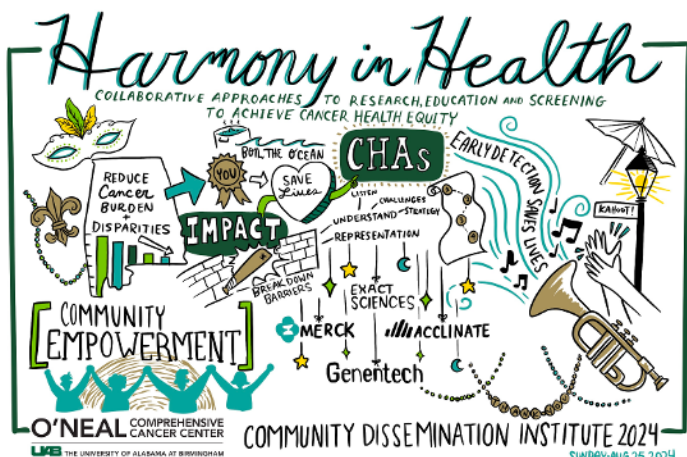 Harmony in Health
COLLABORATIVE APPROACHES TO RESEARCH, EDUCATION AND SCREENING
TO ACHIEVE CANCER HEALTH EQUITY
REDUCE
Cancer
BURDEN
+
DISPARITIES
BOIL THE OCEAN
YOU
SAVE
Lives
IMPACT
BREAK DOWN
BARRIERS
CHAs
LISTEN
CHALLENGES
UNDERSTAND
STRATEGY
REPRESENTATION
EARLY DETECTION SAVES LIVES
KAHOOT!
EXACT
SCIENCES
MERCK
ACCLINATE
Genentech
THANK YOU
[COMMUNITY
EMPOWERMENT]
O'NEAL COMPREHENSIVE
CANCER CENTER
UAB THE UNIVERSITY OF ALABAMA AT BIRMINGHAM
COMMUNITY DISSEMINATION INSTITUTE 2024
SUNDAY·AUG 25, 2024